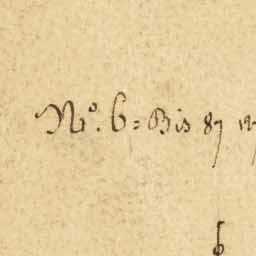 No. 6 = Bis 87
6